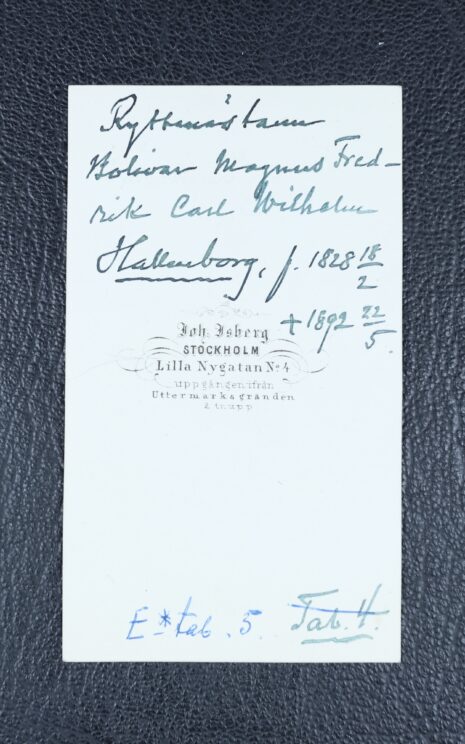 Ryttmästaren
Bolivar Magnus Fred-
rik Carl Wilhelm
Hallenborg, f. 1828 18/2
+ 1892 22/5.
Joh. Isberg
STOCKHOLM
Lilla Nygatan No 4
uppgången ifrån
Uttermarkagränden
2 tr. upp
E * tab. 5. Tab. 4.